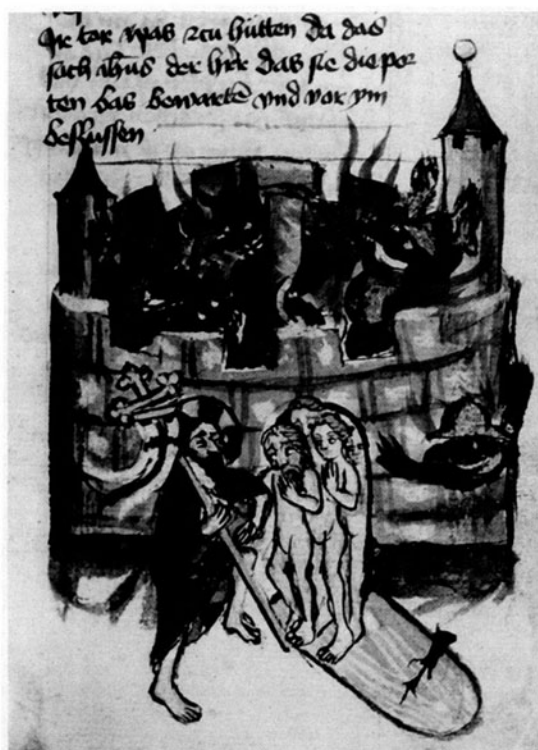 Ir tor was zcu hütten da das
sach ihus der das sie die por
ten bas bewartē vnd vor ym
beslussen